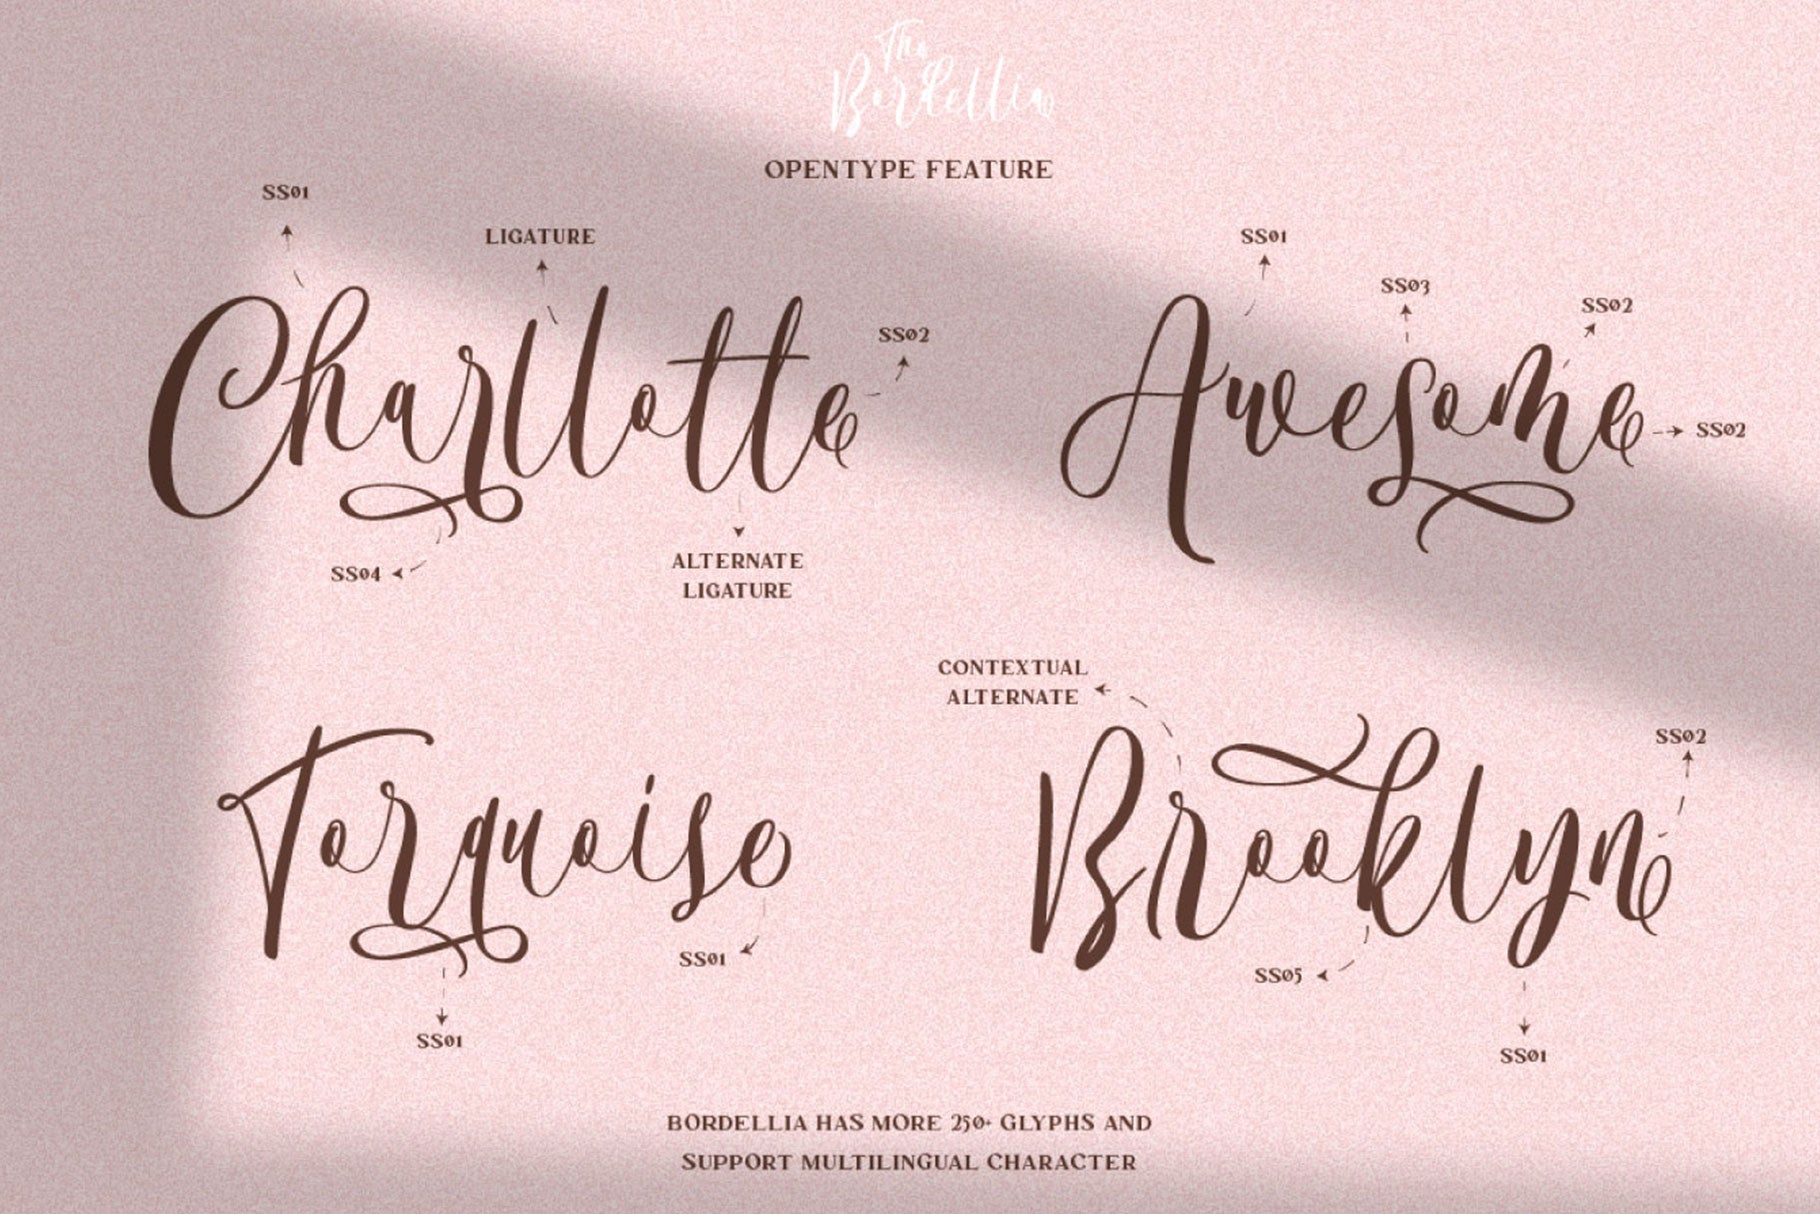 The
Bordellia
OPENTYPE FEATURE
SS01
LIGATURE
SS02
Charllotte
SS04
ALTERNATE
LIGATURE
SS01
SS03
SS02
Awesome
SS02
Torquoise
SS01
SS01
CONTEXTUAL
ALTERNATE
SS02
Brooklyn
SS05
SS01
BORDELLIA HAS MORE 250+ GLYPHS AND
SUPPORT MULTILINGUAL CHARACTER